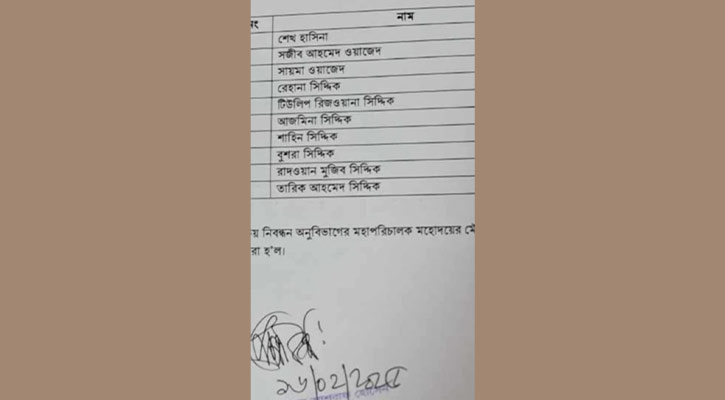 নং নাম
শেখ হাসিনা
সজীব আহমেদ ওয়াজেদ
সায়মা ওয়াজেদ
রেহানা সিদ্দিক
টিউলিপ রিজওয়ানা সিদ্দিক
আজমিনা সিদ্দিক
শাহিন সিদ্দিক
বুশরা সিদ্দিক
রাদওয়ান মুজিব সিদ্দিক
তারিক আহমেদ সিদ্দিক
য় নিবন্ধন অনুবিভাগের মহাপরিচালক মহোদয়ের মৌ
রা হ'ল।
১৬/০২/২০২৫